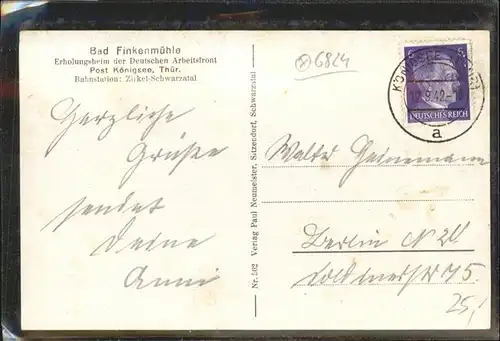 Bad Finkenmühle
Erholungsheim der Deutschen Arbeitsfront
Post Königsee, Thür.
Bahnstation: Zirkel-Schwarzatal
Herzliche
Grüße
sendet
Deine
Anni
Nr. 502 Verlag Paul Neumeister, Sitzendorf, Schwarzatal
6824
KÖNIGSEE
9.42
a
DEUTSCHES REICH
Walter Heinemann
Berlin N
75
25,-